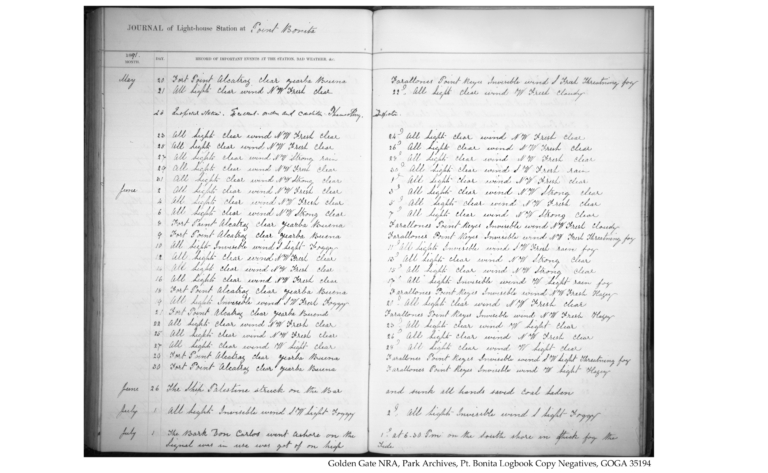 JOURNAL of Light-house Station at Point Bonita
MONTH. DAY RECORD OF IMPORTANT EVENTS AT THE STATION, BAD WEATHER, &c.
May 20 Fort Point Alcatraz clear yearba Buena
21 All light clear wind NW Fresh clear
24
23 All light clear wind NW Fresh clear
All light clear wind NW Fresh clear
27 All light clear wind NW Strong rain
29 All light clear wind NW Fresh clear
31 All light clear wind NW Strong clear
June 2 All light clear wind NW Fresh clear
4 All light clear wind NW Fresh clear
6 All light clear wind NW Strong clear
8 Fort Point Alcatraz clear yearba Buena
9 Fort Point Alcatraz clear yearba Buena
10 All light Invisible wind S light Foggy
12 All light clear wind NW Fresh clear
14 All light clear wind NW Fresh clear
16 All light clear wind NW Fresh clear
18 Fort Point Alcatraz clear yearba Buena
19 All light Invisible wind SW Fresh Foggy
21 Fort Point Alcatraz clear yearba Buena
22 All light clear wind NW Fresh clear
25 All light clear wind NW Fresh clear
27 All light clear wind W light clear
Fort Point Alcatraz clear yearba Buena
30 Fort Point Alcatraz clear yearba Buena
June 26 The Ship Palestine struck on the Bar
July 1 All light Invisible wind SW light Foggy
July 1 The Bark Don Carlos went ashore on the
Signal was in use was got of on high
Farallones Point Reyes Invisible wind S Fresh Threatning foy
22d All light clear wind W Fresh cloudy
24 All light clear wind NW Fresh clear
26 All light clear wind NW Fresh clear
All light clear wind NW Fresh clear
All light clear wind SW Fresh rain
1 All light clear wind NW Fresh clear
3 All light clear wind NW Strong clear
5 All light clear wind NW Fresh clear
7 All light clear wind NW Strong clear
Farallones Point Reyes Invisible wind NW Fresh Cloudy
Farallones Point Reyes Invisible wind NW Fresh Threatning foy
11 All light Invisible wind SW Fresh rain foy
13 All light clear wind NW Strong clear
15 All light clear wind NW Strong clear
17 All light Invisible wind W light rain foy
Farallones Point Reyes Invisible wind NW Fresh Hazy
All light clear wind NW Fresh clear
Farallones Point Reyes Invisible wind NW Fresh Hazy
All light clear wind W light clear
All light clear wind NW Fresh clear
All light clear wind W light clear
Farallones Point Reyes Invisible wind SW light Threatning foy
Farallones Point Reyes Invisible wind W light Hazy
and sunk all hands saved coal laden
2d All light Invisible wind S light Foggy
1 at 6.30 Pm on the south shore in thick foy the
Tide
Golden Gate NRA, Park Archives, Pt. Bonita Logbook Copy Negatives, GOGA 35194